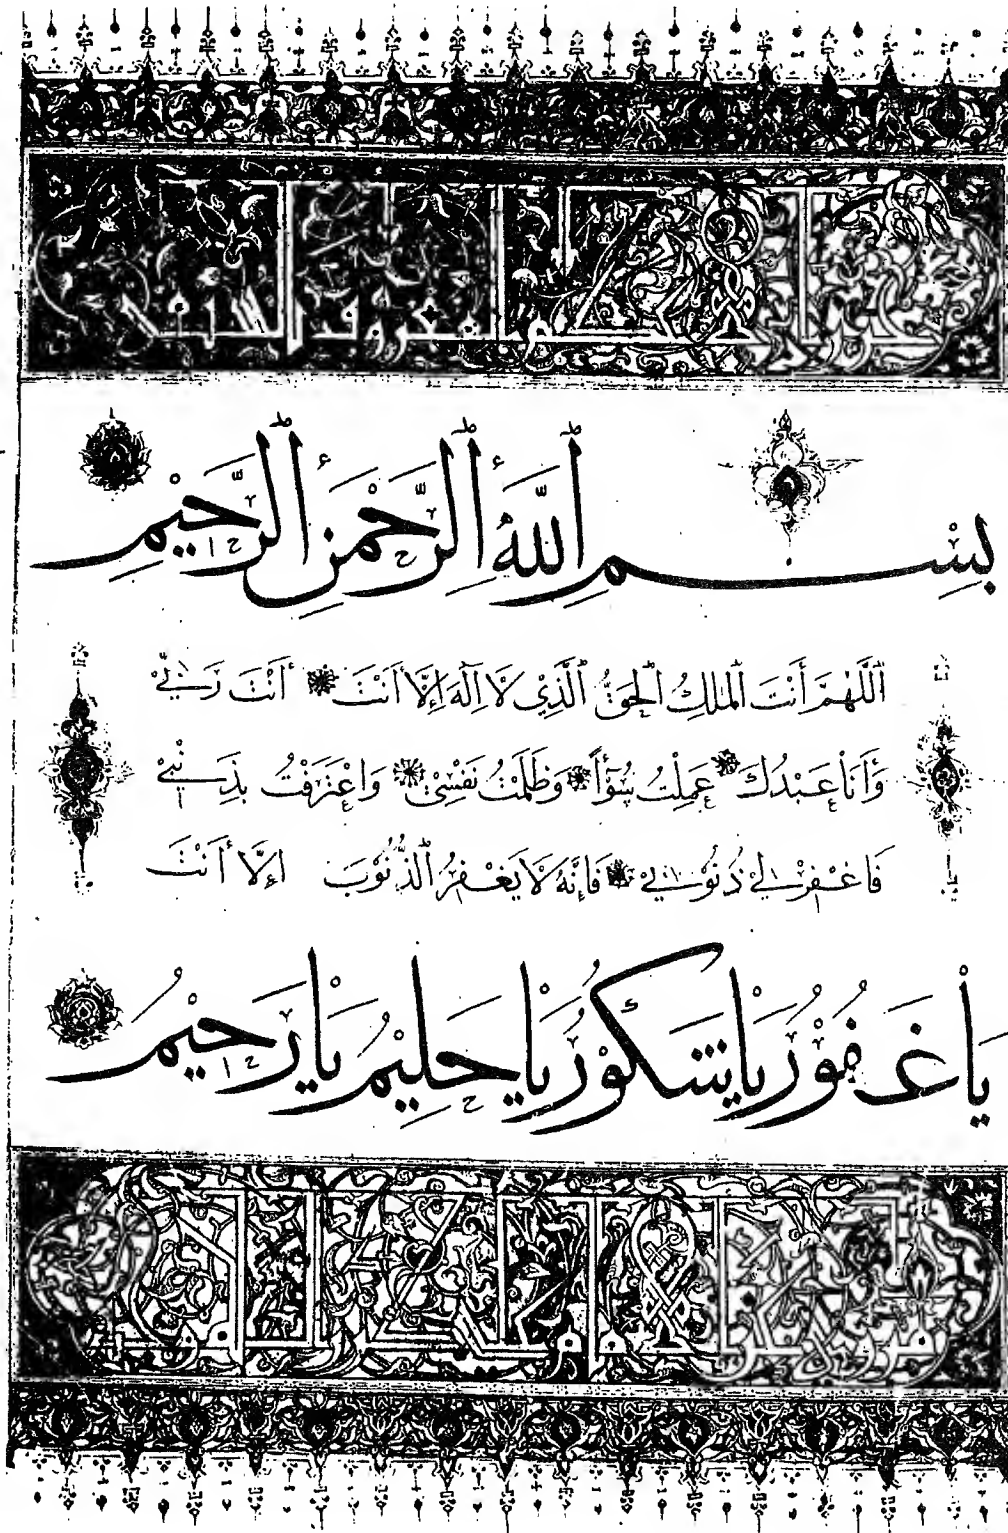 بِسْمِ ٱللَّهِ ٱلرَّحْمَنِ ٱلرَّحِيْمِ
اَللَّهُمَّ أَنْتَ ٱلْمَلِكُ ٱلْحَقُّ ٱلَّذِيْ لَا اِلَهَ إِلَّا أَنْتَ أَنْتَ رَبِّيْ
وَأَنَا عَبْدُكَ عَمِلْتُ سُوْٓأً وَظَلَمْتُ نَفْسِيْ وَاعْتَرَفْتُ بِذَنْبِيْ
فَاغْفِرْ لِيْ ذُنُوْبِيْ فَإِنَّهُ لَا يَغْفِرُ ٱلذُّنُوْبَ اِلَّا أَنْتَ
يَا غَفُوْرُ يَا شَكُوْرُ يَا حَلِيْمُ يَا رَحِيْمُ